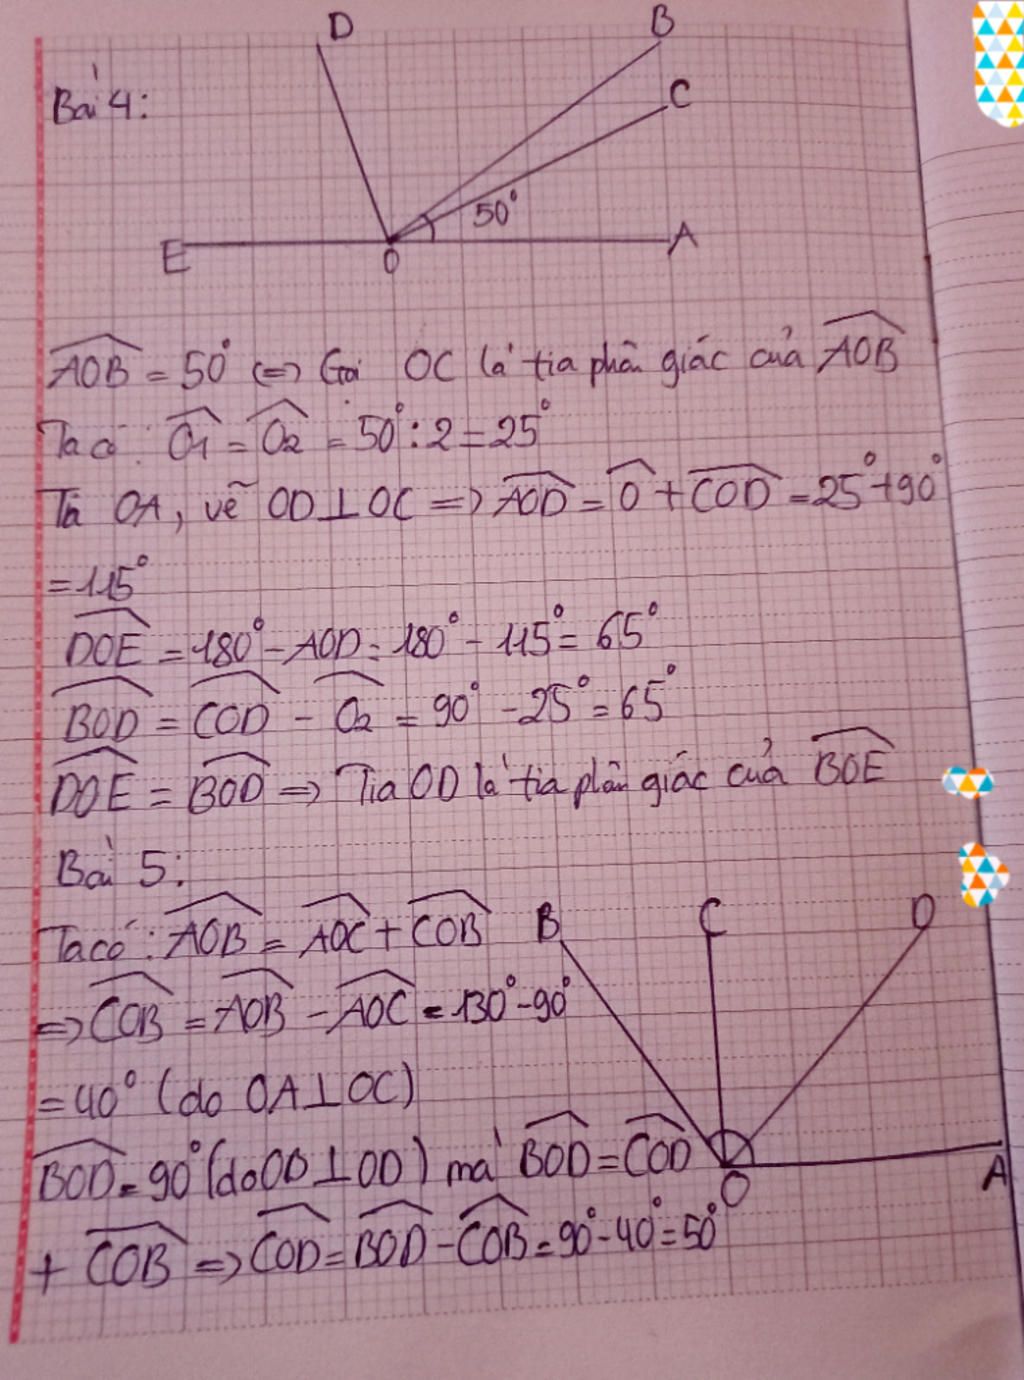 D B
Bài 4: C
50°
E O A
AOB = 50° <=> Gọi OC là tia phân giác của AOB
Ta có: O1 = O2 = 50° : 2 = 25°
Từ OA, vẽ OD ⊥ OC => AOD = O + COD = 25° + 90°
= 115°
DOE = 180° - AOD = 180° - 115° = 65°
BOD = COD - O2 = 90° - 25° = 65°
DOE = BOD => Tia OD là tia phân giác của BOE
Bài 5:
Ta có: AOB = AOC + COB B C D
=> COB = AOB - AOC = 130° - 90°
= 40° (do OA ⊥ OC)
BOD = 90° (do OD ⊥ OD) mà BOD = COD O A
+ COB => COD = BOD - COB = 90° - 40° = 50°